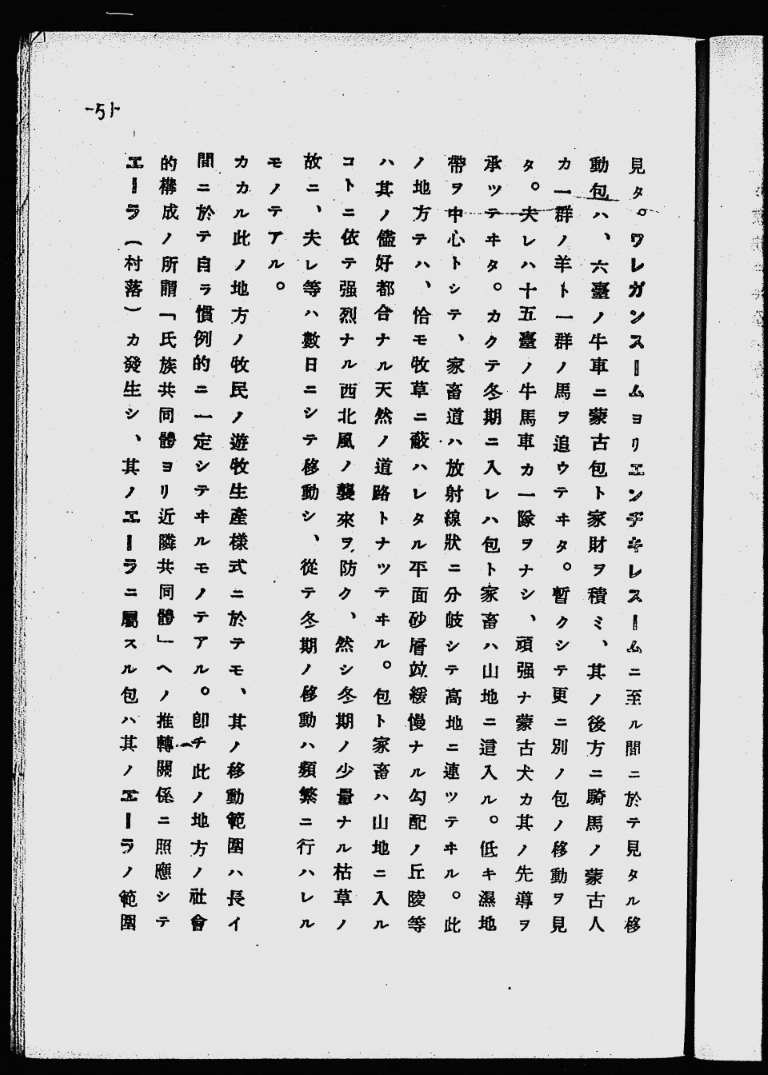 -51-
見タ。ワレガンスームヨリエンヂキレスームニ至ル間ニ於テ見タル移
動包ハ、六臺ノ牛車ニ蒙古包ト家財ヲ積ミ、其ノ後方ニ騎馬ノ蒙古人
カ一群ノ羊ト一群ノ馬ヲ追ウテヰタ。暫クシテ更ニ別ノ包ノ移動ヲ見
タ。夫レハ十五臺ノ牛馬車カ一隊ヲナシ、頑强ナ蒙古犬カ其ノ先導ヲ
承ツテヰタ。カクテ冬期ニ入レハ包ト家畜ハ山地ニ這入ル。低キ濕地
帶ヲ中心トシテ、家畜道ハ放射線狀ニ分岐シテ高地ニ連ツテヰル。此
ノ地方テハ、恰モ牧草ニ蔽ハレタル平面砂層竝緩慢ナル勾配ノ丘陵等
ハ其ノ儘好都合ナル天然ノ道路トナツテヰル。包ト家畜ハ山地ニ入ル
コトニ依テ强烈ナル西北風ノ襲來ヲ防ク、然シ冬期ノ少量ナル枯草ノ
故ニ、夫レ等ハ數日ニシテ移動シ、從テ冬期ノ移動ハ頻繁ニ行ハレル
モノテアル。
カカル此ノ地方ノ牧民ノ遊牧生產樣式ニ於テモ、其ノ移動範圍ハ長イ
間ニ於テ自ラ慣例的ニ一定シテヰルモノテアル。卽チ此ノ地方ノ社會
的構成ノ所謂「氏族共同體ヨリ近隣共同體」ヘノ推轉關係ニ照應シテ
エーラ(村落)カ發生シ、其ノエーラニ屬スル包ハ其ノエーラノ範圍